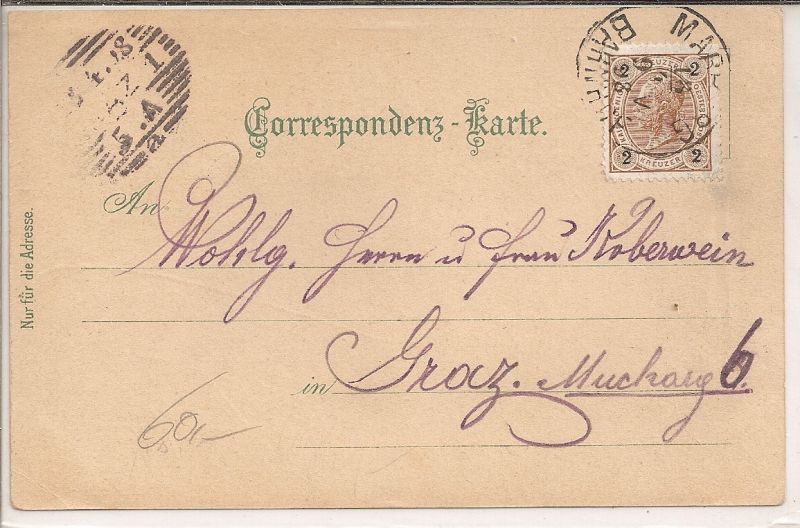 Correspondenz-Karte.
2 2
2 KREUZER 2
MAR
An
Wohlg. Herrn u Frau Koberwein
in Graz. Muckarg 6.
Nur für die Adresse.
60,-